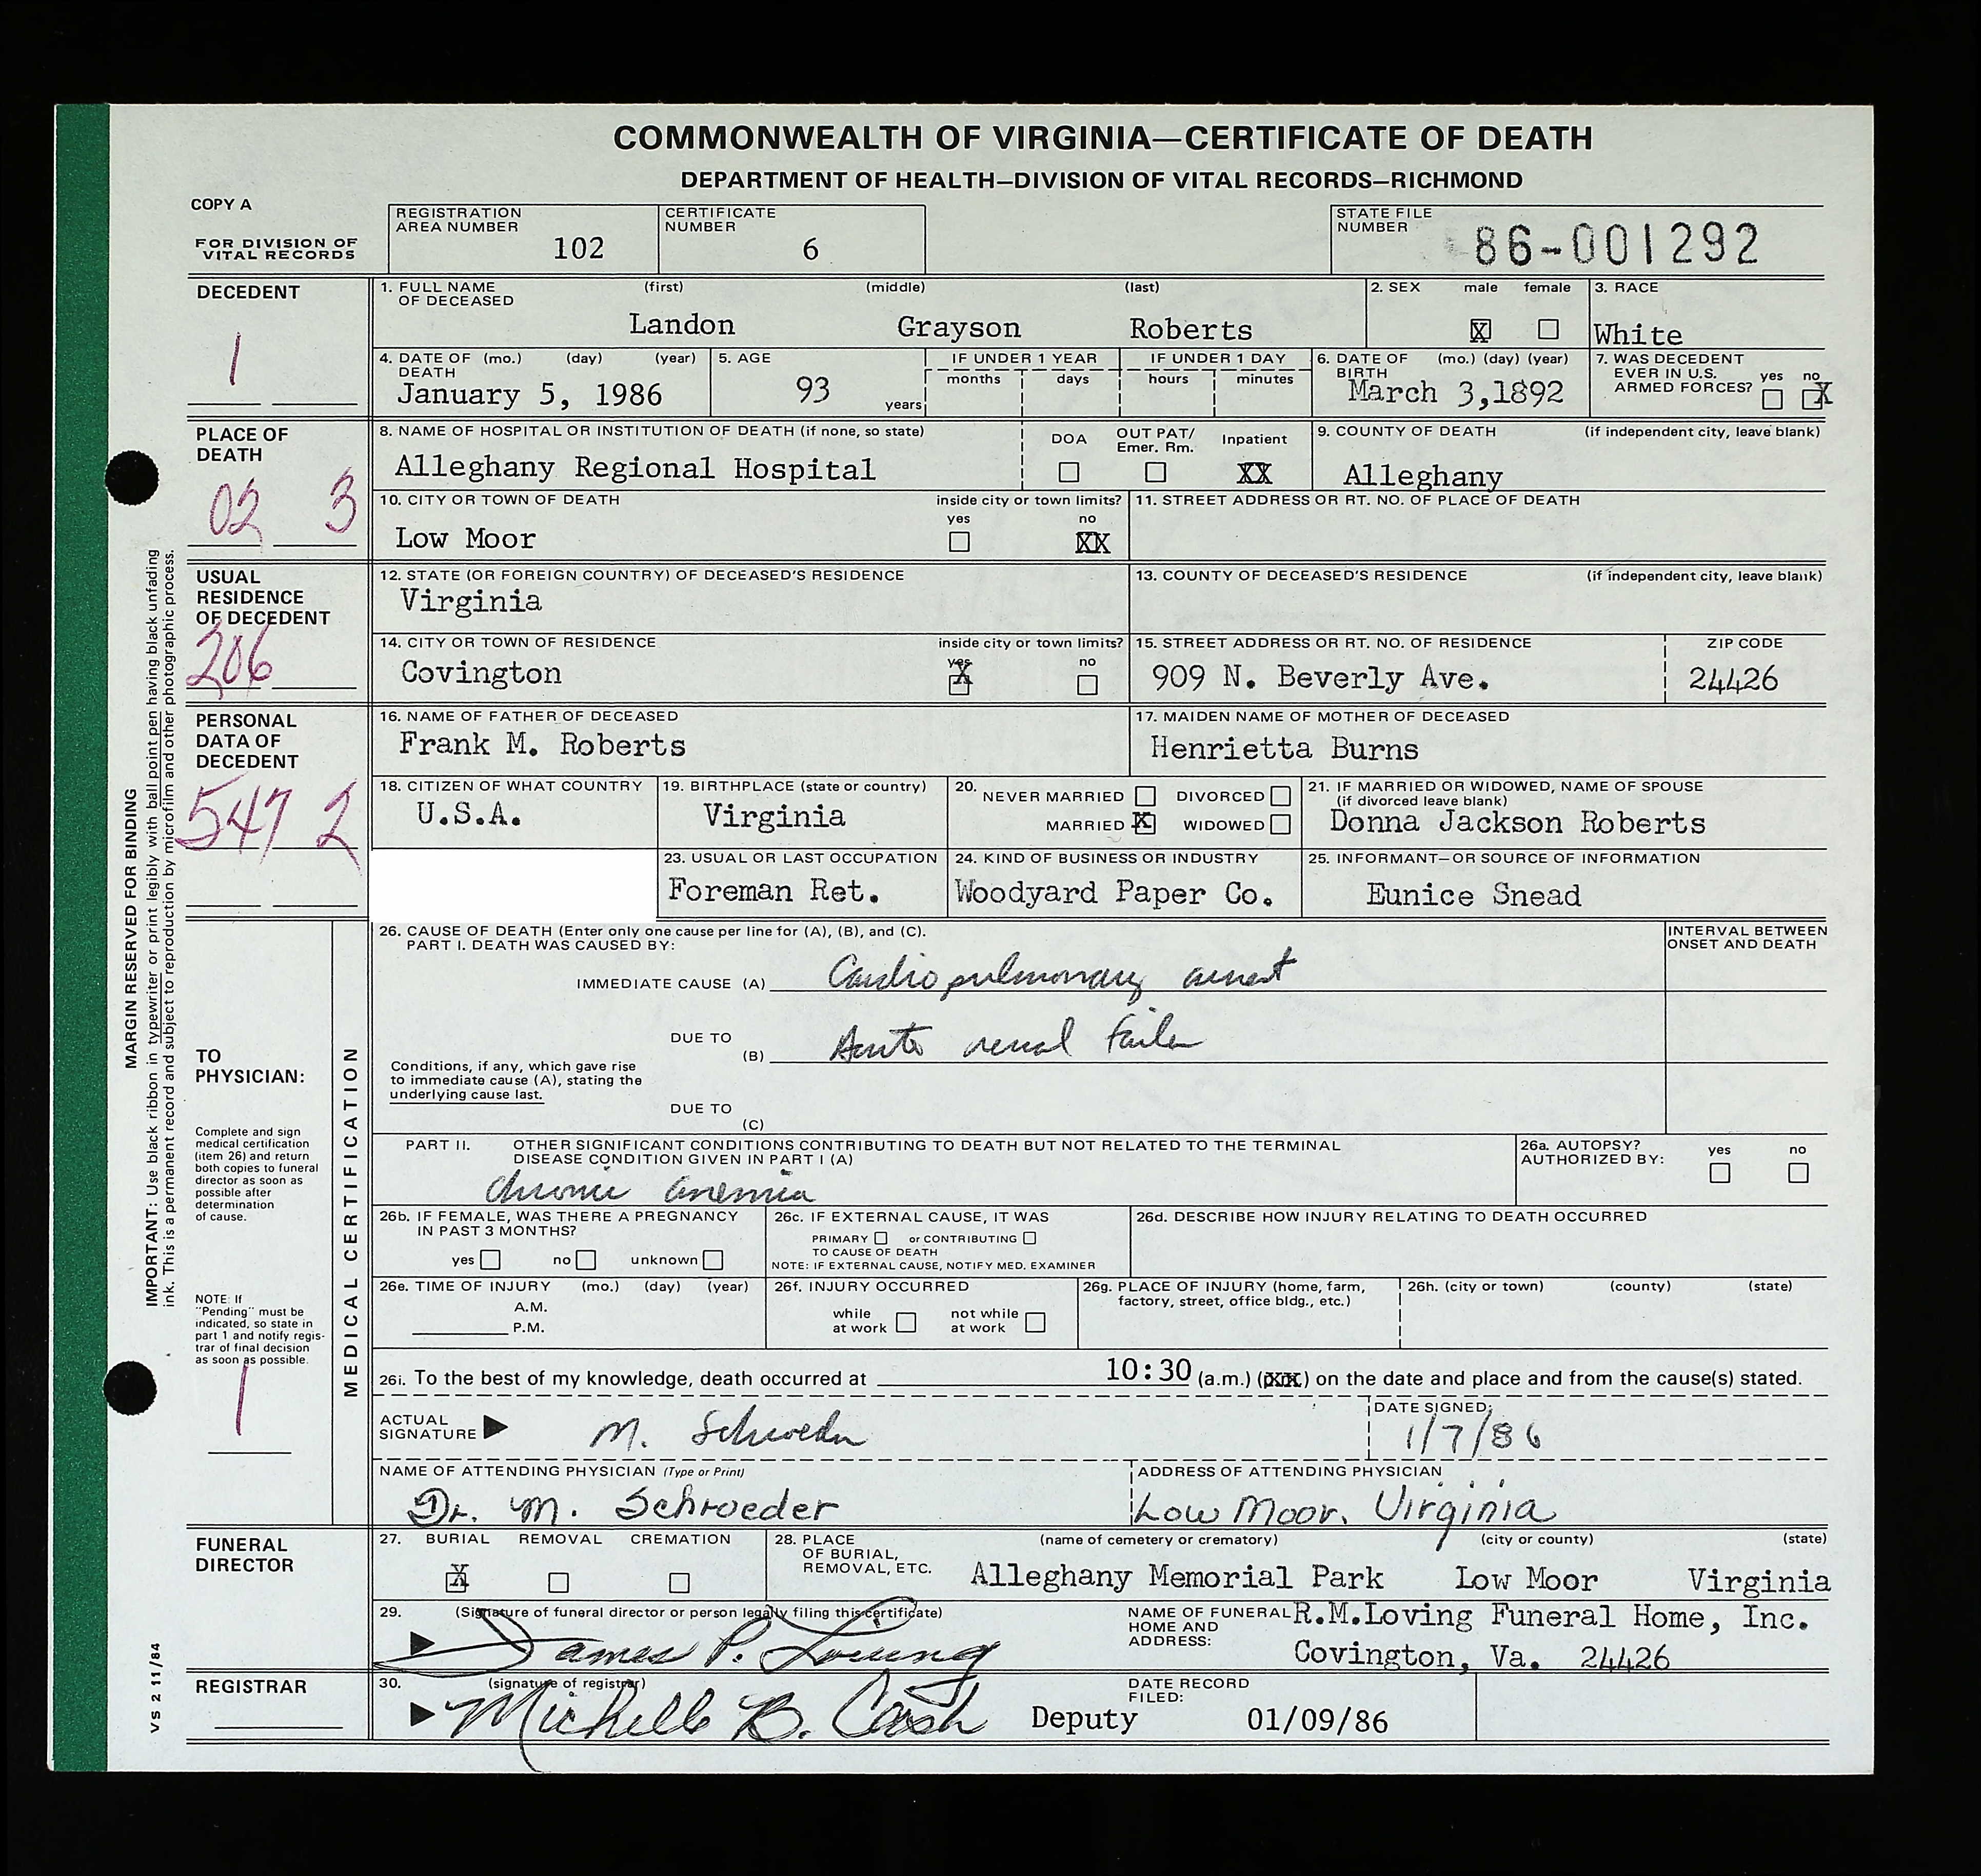 COMMONWEALTH OF VIRGINIA—CERTIFICATE OF DEATH
DEPARTMENT OF HEALTH—DIVISION OF VITAL RECORDS—RICHMOND
COPY A
FOR DIVISION OF
VITAL RECORDS
REGISTRATION
AREA NUMBER
102
CERTIFICATE
NUMBER
6
STATE FILE
NUMBER
86-001292
DECEDENT
1
1. FULL NAME (first) (middle) (last)
OF DECEASED
Landon Grayson Roberts
2. SEX male female
X
3. RACE
White
4. DATE OF (mo.) (day) (year)
DEATH
January 5, 1986
5. AGE
93
years
IF UNDER 1 YEAR
months days
IF UNDER 1 DAY
hours minutes
6. DATE OF (mo.) (day) (year)
BIRTH
March 3,1892
7. WAS DECEDENT
EVER IN U.S.
ARMED FORCES? yes no
X
PLACE OF
DEATH
02 3
8. NAME OF HOSPITAL OR INSTITUTION OF DEATH (if none, so state)
Alleghany Regional Hospital
DOA
OUT PAT/
Emer. Rm.
Inpatient
XX
9. COUNTY OF DEATH (if independent city, leave blank)
Alleghany
10. CITY OR TOWN OF DEATH
Low Moor
inside city or town limits?
yes no
XX
11. STREET ADDRESS OR RT. NO. OF PLACE OF DEATH
USUAL
RESIDENCE
OF DECEDENT
206
12. STATE (OR FOREIGN COUNTRY) OF DECEASED'S RESIDENCE
Virginia
13. COUNTY OF DECEASED'S RESIDENCE (if independent city, leave blank)
14. CITY OR TOWN OF RESIDENCE
Covington
inside city or town limits?
yes no
X
15. STREET ADDRESS OR RT. NO. OF RESIDENCE
909 N. Beverly Ave.
ZIP CODE
24426
PERSONAL
DATA OF
DECEDENT
547 2
16. NAME OF FATHER OF DECEASED
Frank M. Roberts
17. MAIDEN NAME OF MOTHER OF DECEASED
Henrietta Burns
18. CITIZEN OF WHAT COUNTRY
U.S.A.
19. BIRTHPLACE (state or country)
Virginia
20.
NEVER MARRIED DIVORCED
MARRIED X WIDOWED
21. IF MARRIED OR WIDOWED, NAME OF SPOUSE
(if divorced leave blank)
Donna Jackson Roberts
23. USUAL OR LAST OCCUPATION
Foreman Ret.
24. KIND OF BUSINESS OR INDUSTRY
Woodyard Paper Co.
25. INFORMANT—OR SOURCE OF INFORMATION
Eunice Snead
MARGIN RESERVED FOR BINDING
IMPORTANT: Use black ribbon in typewriter or print legibly with ball point pen having black unfading
ink. This is a permanent record and subject to reproduction by microfilm and other photographic process.
TO
PHYSICIAN:
Complete and sign
medical certification
(item 26) and return
both copies to funeral
director as soon as
possible after
determination
of cause.
NOTE: If
"Pending" must be
indicated, so state in
part 1 and notify regis-
trar of final decision
as soon as possible.
1
MEDICAL CERTIFICATION
26. CAUSE OF DEATH (Enter only one cause per line for (A), (B), and (C).
PART I. DEATH WAS CAUSED BY:
INTERVAL BETWEEN
ONSET AND DEATH
IMMEDIATE CAUSE (A) Cardiopulmonary arrest
DUE TO
(B) Acute renal failure
Conditions, if any, which gave rise
to immediate cause (A), stating the
underlying cause last.
DUE TO
(C)
PART II. OTHER SIGNIFICANT CONDITIONS CONTRIBUTING TO DEATH BUT NOT RELATED TO THE TERMINAL
DISEASE CONDITION GIVEN IN PART I (A)
Chronic anemia
26a. AUTOPSY?
AUTHORIZED BY:
yes no
26b. IF FEMALE, WAS THERE A PREGNANCY
IN PAST 3 MONTHS?
yes no unknown
26c. IF EXTERNAL CAUSE, IT WAS
PRIMARY or CONTRIBUTING
TO CAUSE OF DEATH
NOTE: IF EXTERNAL CAUSE, NOTIFY MED. EXAMINER
26d. DESCRIBE HOW INJURY RELATING TO DEATH OCCURRED
26e. TIME OF INJURY (mo.) (day) (year)
A.M.
P.M.
26f. INJURY OCCURRED
while
at work
not while
at work
26g. PLACE OF INJURY (home, farm,
factory, street, office bldg., etc.)
26h. (city or town) (county) (state)
26i. To the best of my knowledge, death occurred at 10:30 (a.m.) (XX) on the date and place and from the cause(s) stated.
ACTUAL
SIGNATURE
M. Schroeder
DATE SIGNED:
1/7/86
NAME OF ATTENDING PHYSICIAN (Type or Print)
Dr. M. Schroeder
ADDRESS OF ATTENDING PHYSICIAN
Low Moor, Virginia
FUNERAL
DIRECTOR
27. BURIAL REMOVAL CREMATION
X
28. PLACE
OF BURIAL,
REMOVAL, ETC.
(name of cemetery or crematory) (city or county) (state)
Alleghany Memorial Park Low Moor Virginia
29. (Signature of funeral director or person legally filing this certificate)
James P. Loving
NAME OF FUNERAL
HOME AND
ADDRESS:
R.M.Loving Funeral Home, Inc.
Covington, Va. 24426
REGISTRAR
30. (signature of registrar)
Michelle B. Cash Deputy
DATE RECORD
FILED:
01/09/86
VS 2 11/84